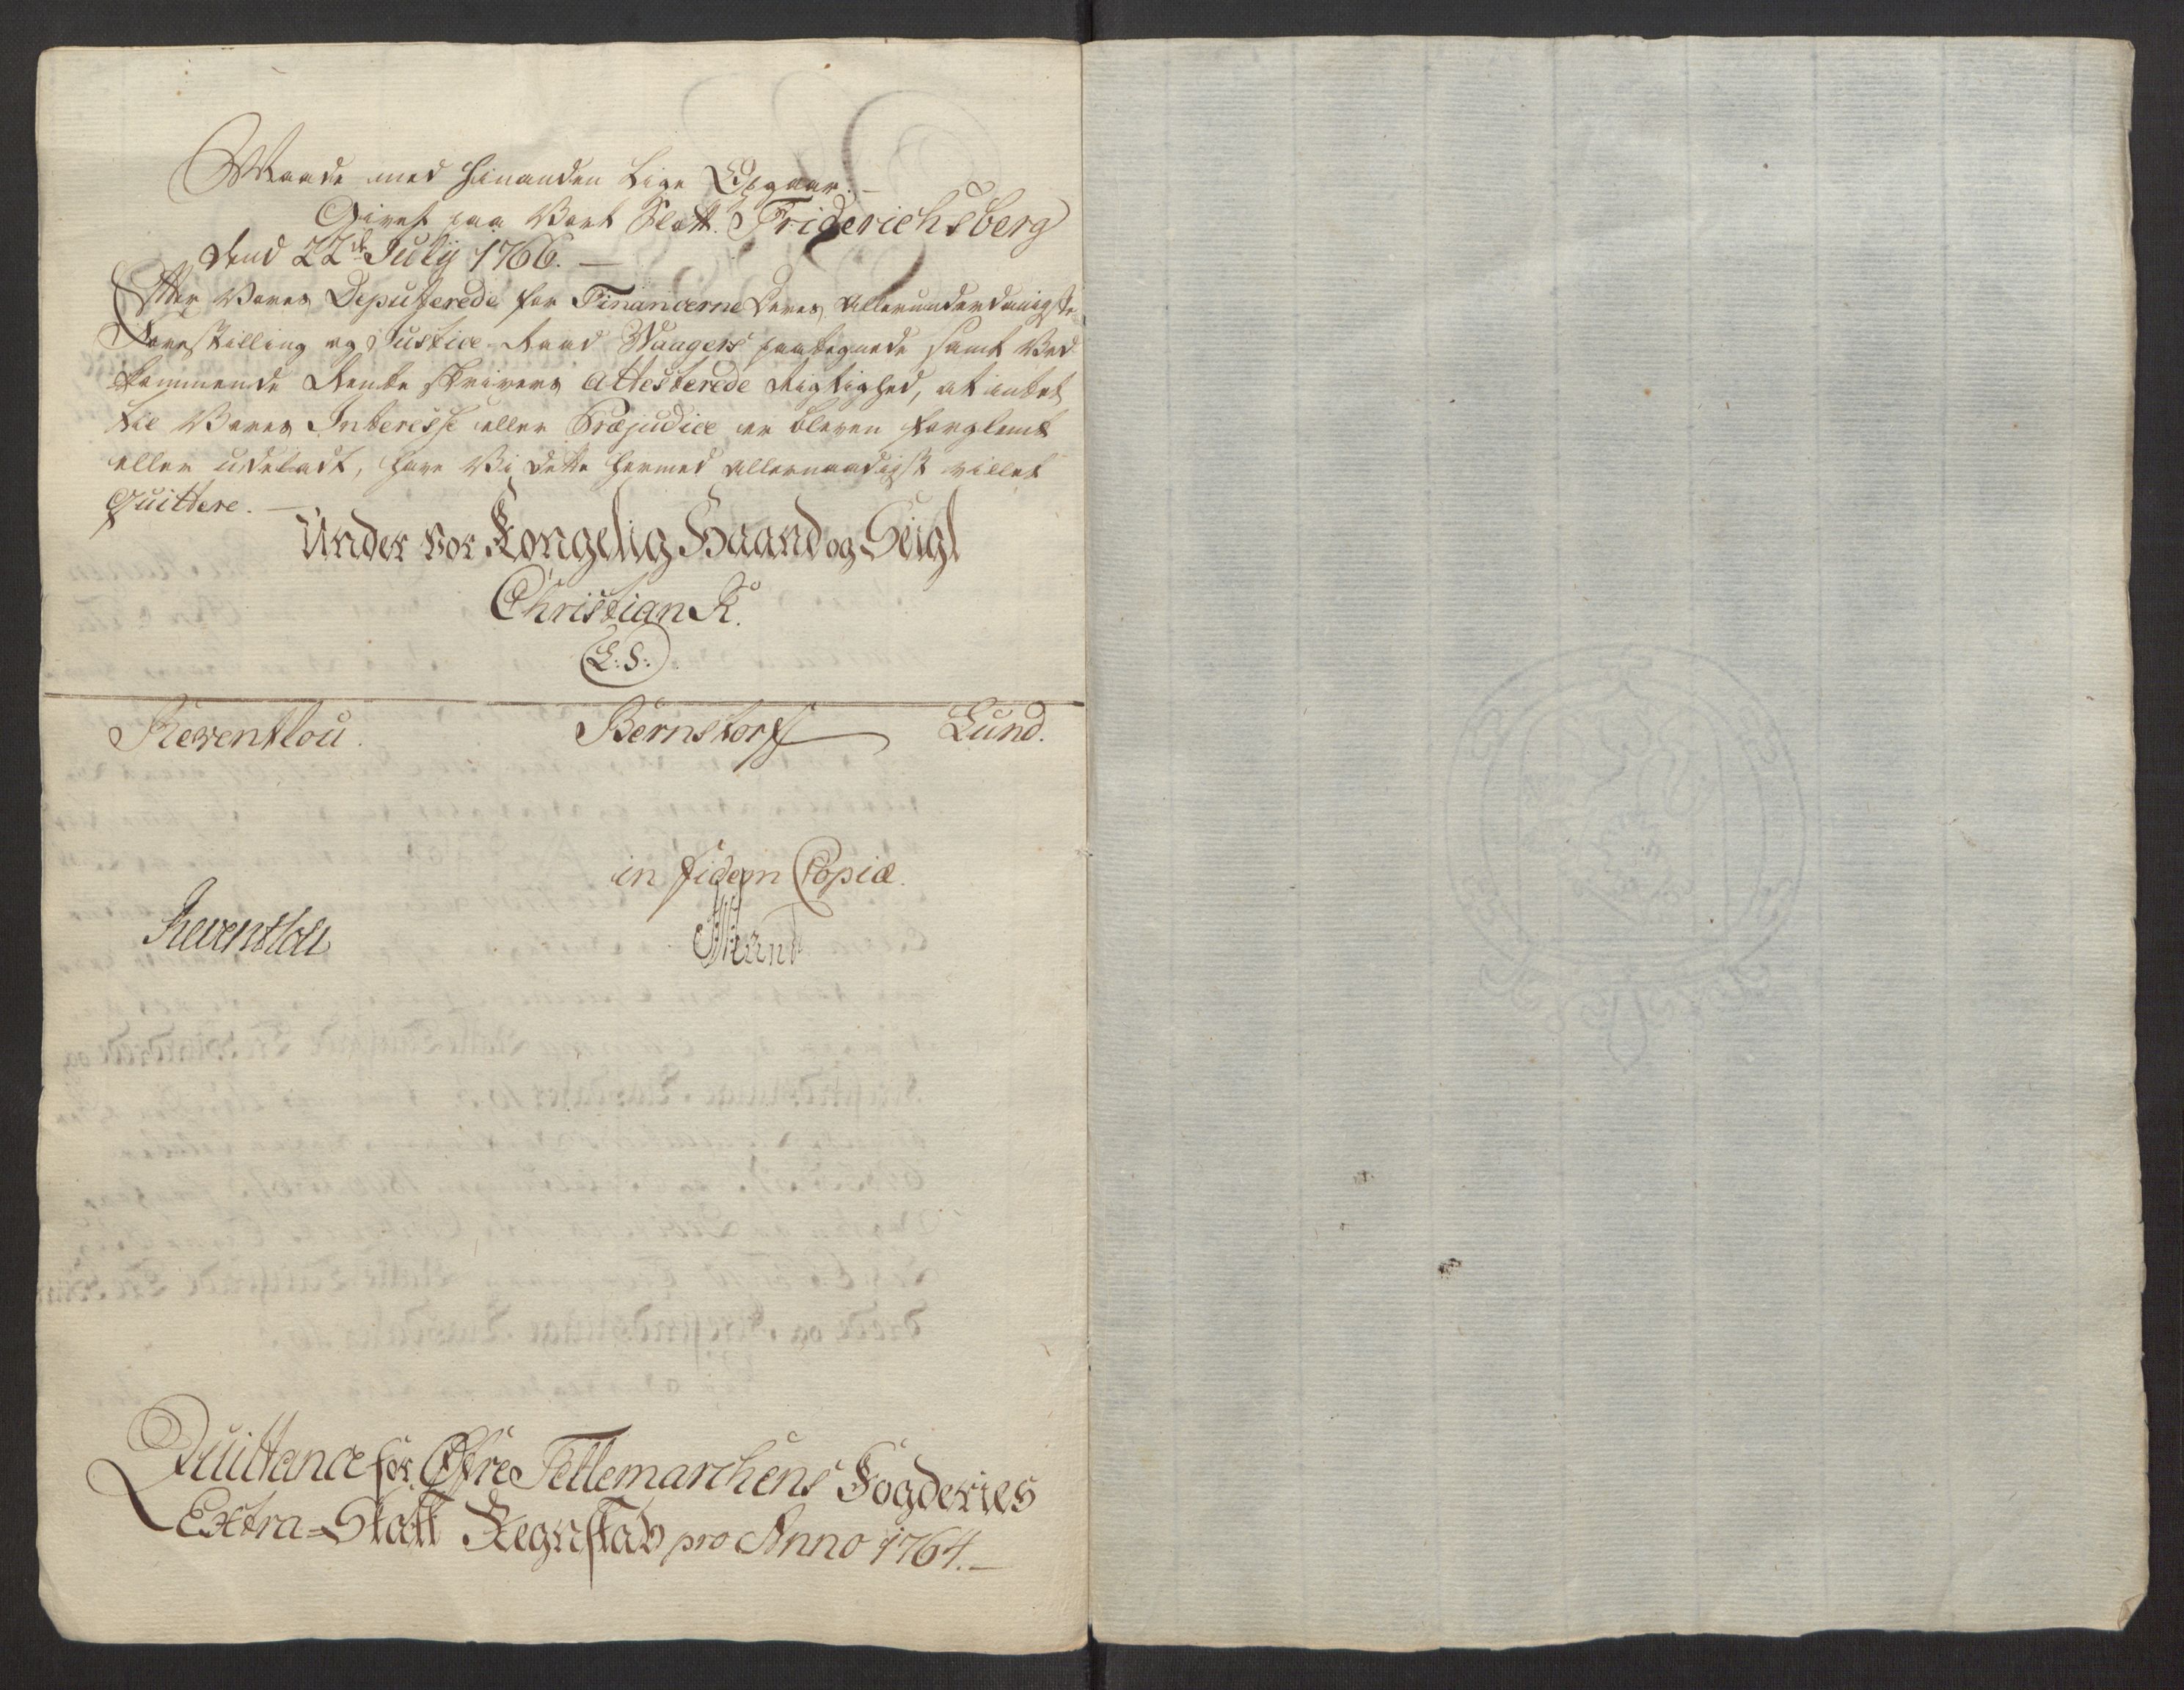 Maade med hinanden lige Opgaar. –
Givet paa Vort Slott Friderichsberg
dend 22de July 1766. –
Efter Vores Deputerede for Financerne deres allerunderdanigste
Forestilling og Justice-Raad Waagers paategnede samt Ved
kommende Rente skrivers attesterede Rigtighed, at intet
til Vores Interesse eller Præjudice er bleven forglemt
eller udeladt, have Vi dette hermed allernaadigst villet
Quittere. –
Under vor Kongelig Haand og Seigl
Christian R.
(L:S:)
Reventlou. Bernstorff Lund.
in fidem Copiæ.
Reventlou
Quittance for Øfre Tellemarchens Fogderies
Extra=Skatt Regnskab pro Anno 1764. –